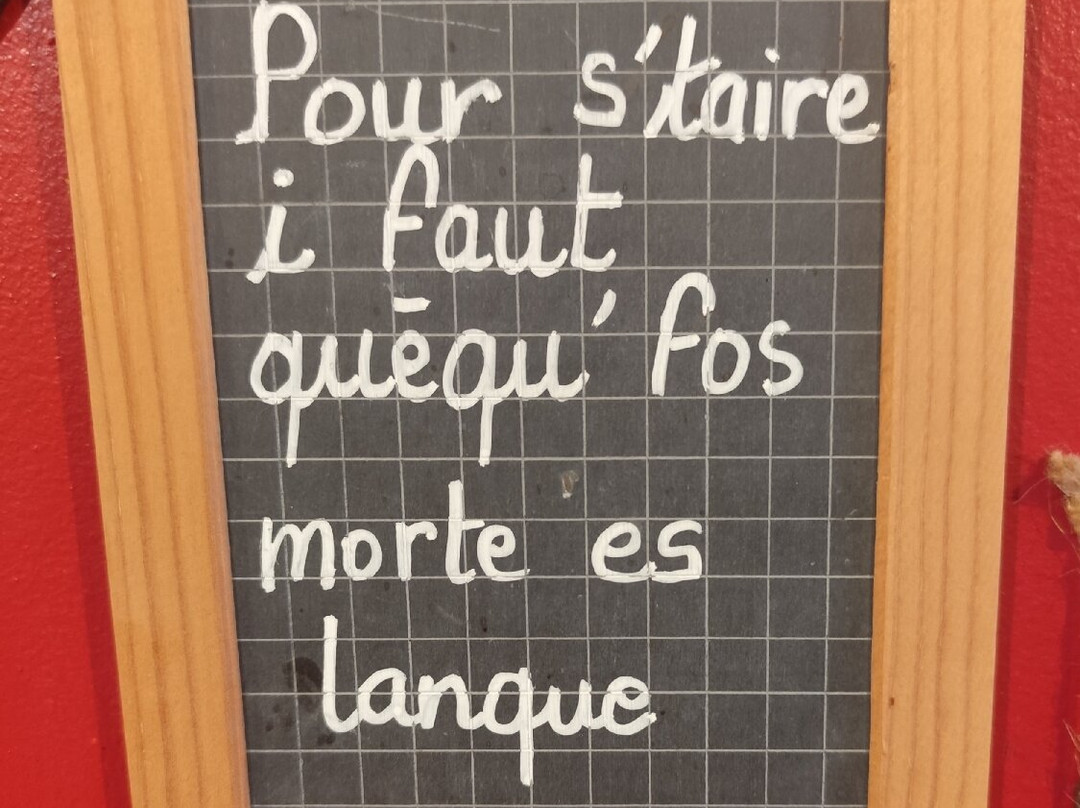 Pour s'taire
i faut
quēqu' fos
morte es
langue